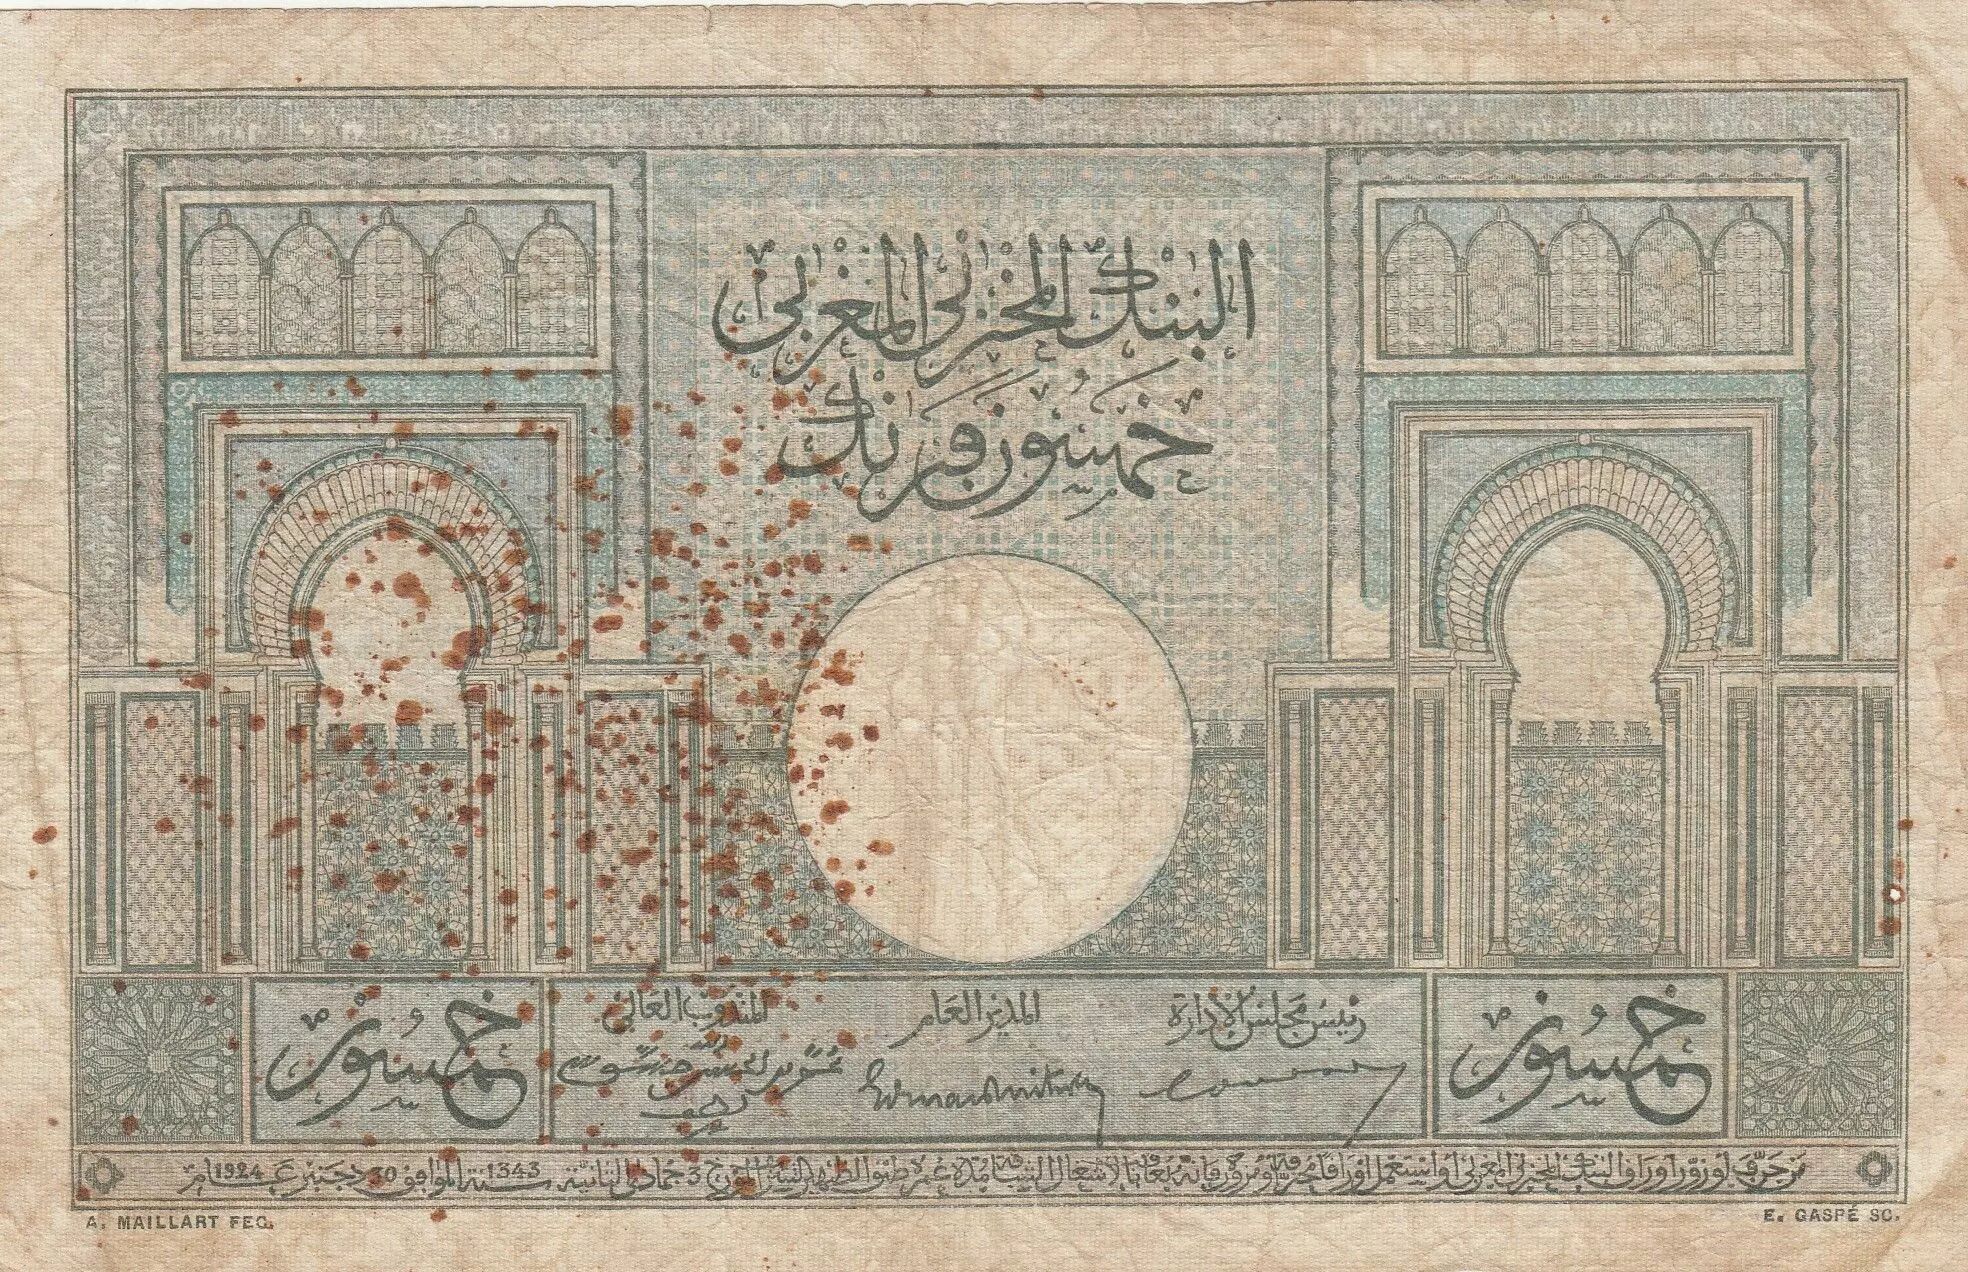 البنك المخزني المغربي
خمسون فرنك
رئيس مجلس الإدارة
المدير العام
المندوب العالي
خمسون
خمسون
من حرّف أو زوّر أوراق البنك المخزني المغربي أو استعمل أوراقا محرفة أو مزورة فإنه يعاقب بالأشغال الشاقة مدة عمره طبق الظهير الشريف المؤرخ 3 جمادى الثانية سنة 1343 الموافق 30 دجنبر عام 1924
A. MAILLART FEC.
E. GASPÉ SC.